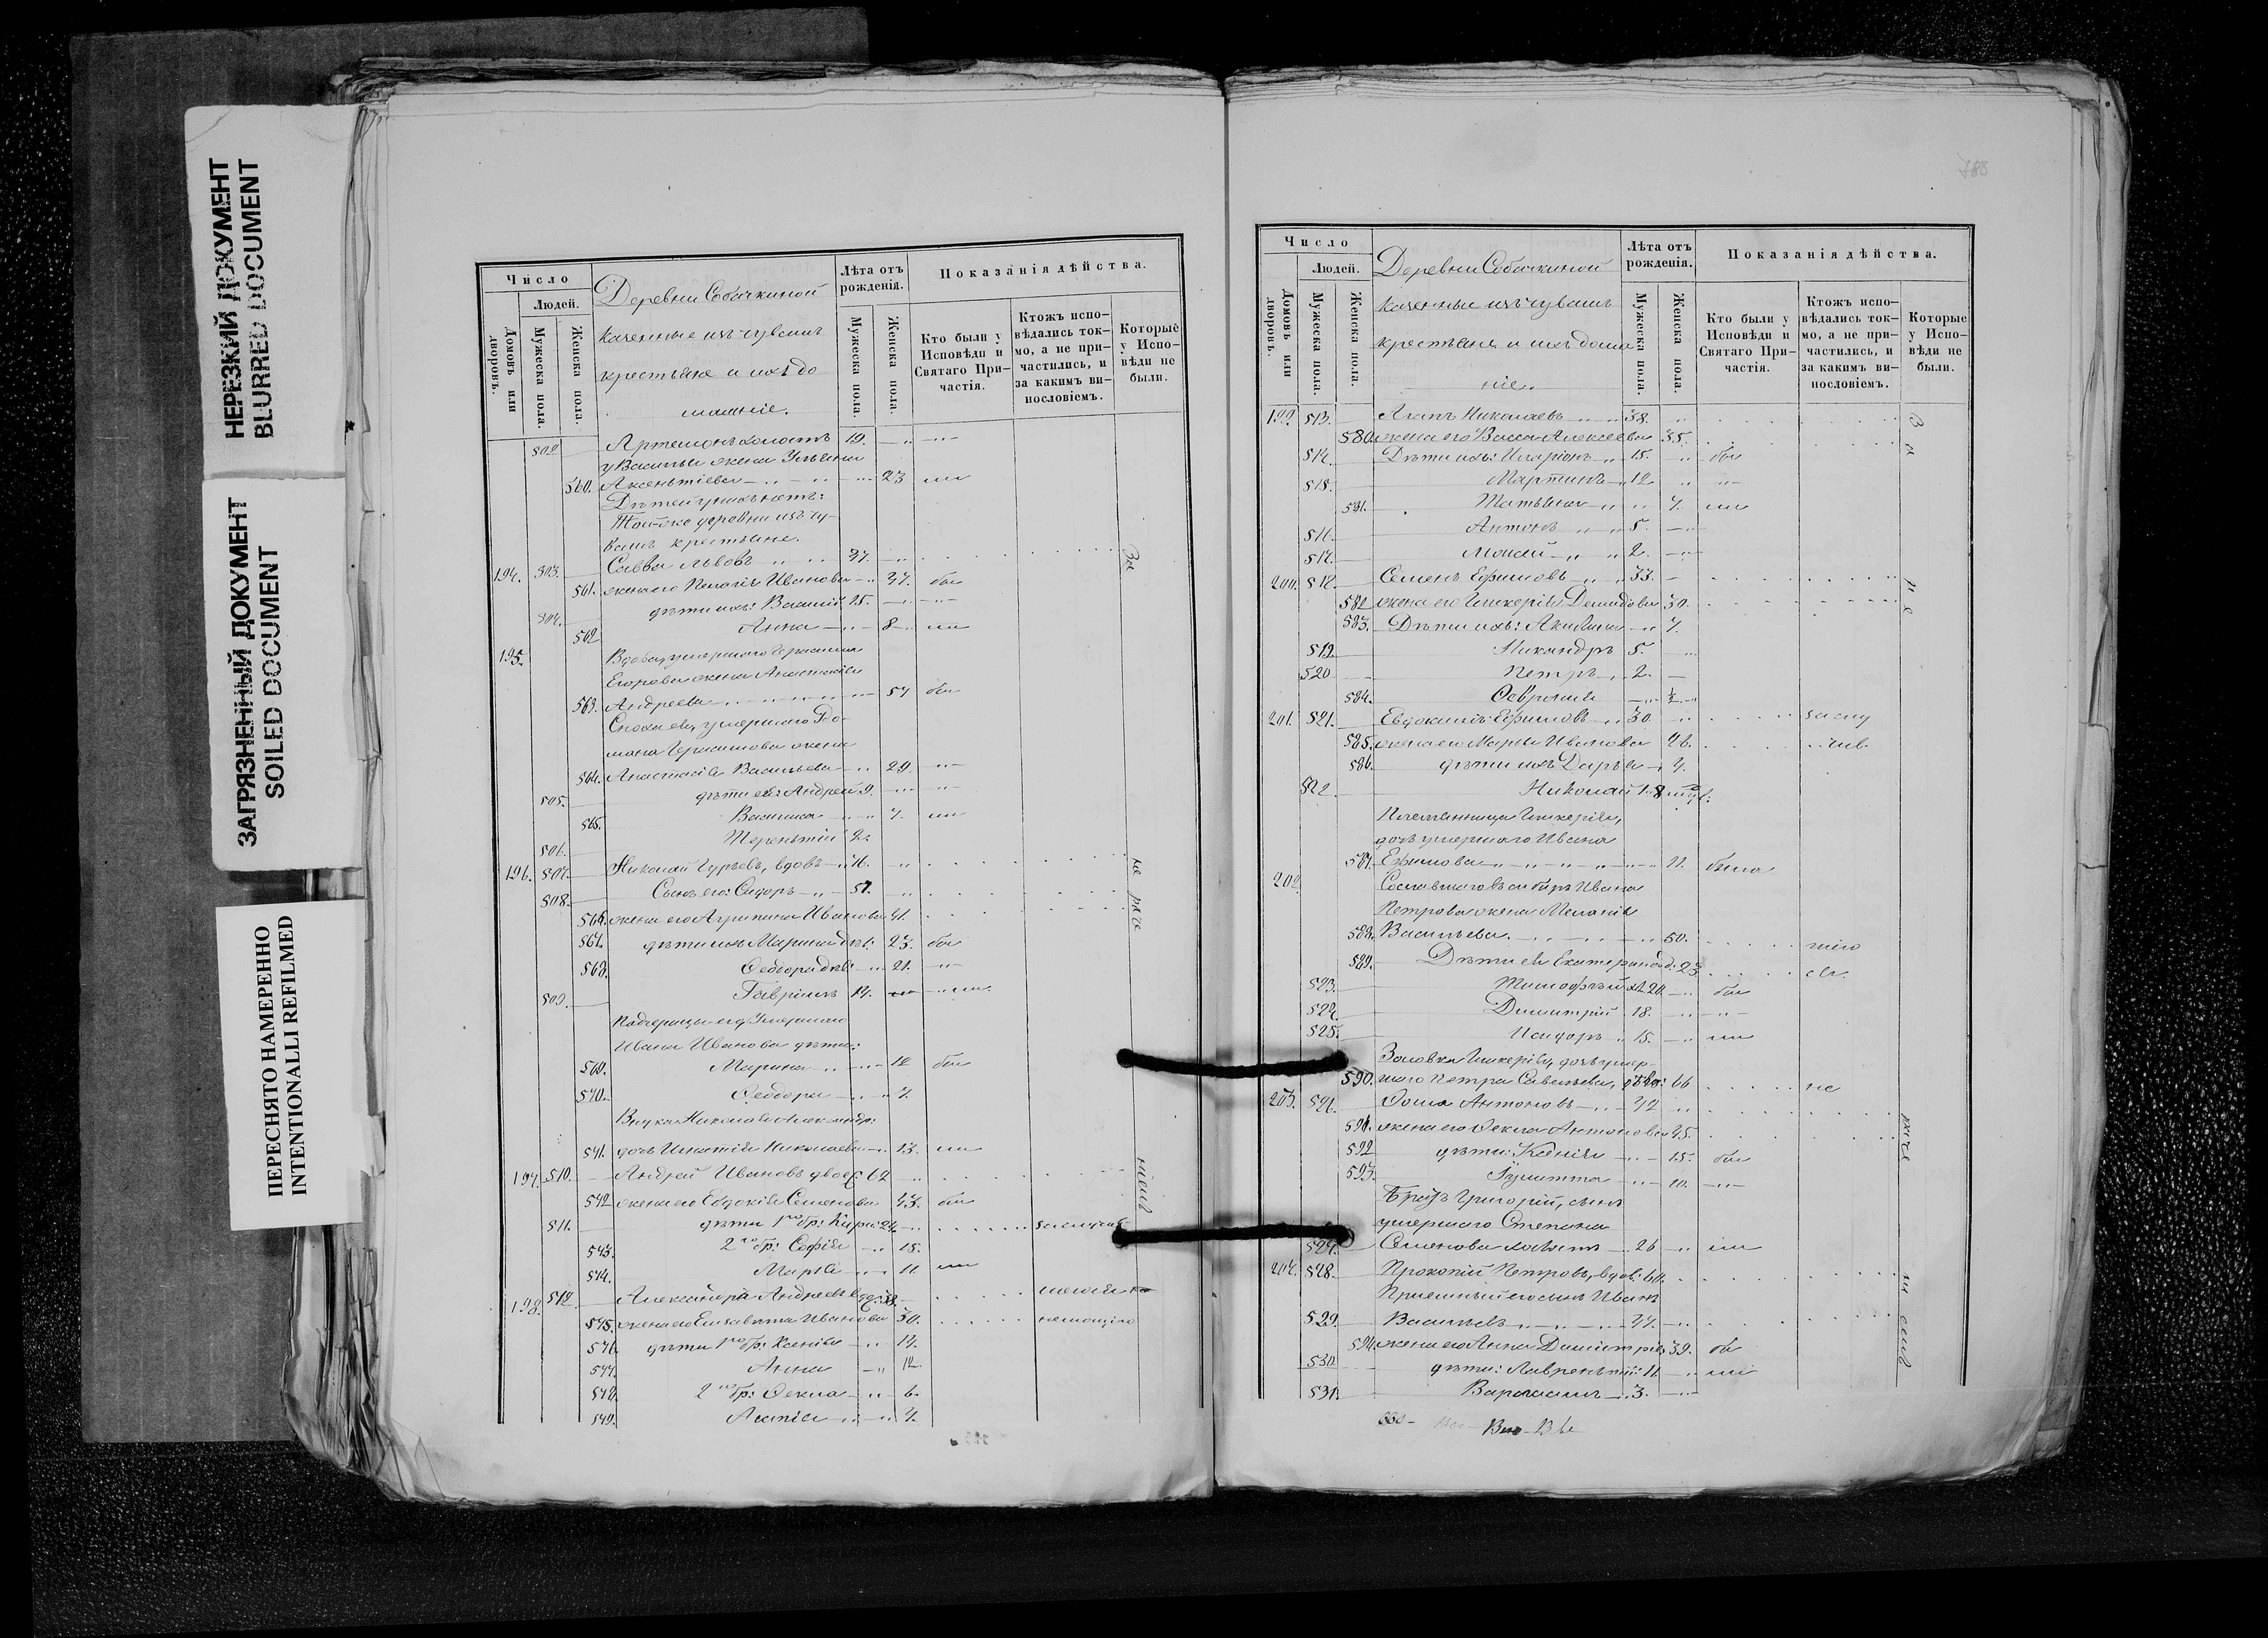 НЕРЕЗКИЙ ДОКУМЕНТ
BLURRED DOCUMENT
ЗАГРЯЗНЕННЫЙ ДОКУМЕНТ
SOILED DOCUMENT
ПЕРЕСНЯТО НАМЕРЕННО
INTENTIONALLI REFILMED
Число
Людей.
Домовъ или дворовъ.
Мужеска пола.
Женска пола.
Деревни Собачкиной
казенные изъ чувашъ
крестьяне и ихъ до
машніе.
Лѣта отъ рожденія.
Мужеска пола.
Женска пола.
Показанія дѣйства.
Кто были у Исповѣди и Святаго Причастія.
Ктожъ исповѣдались токмо, а не причастились, и за какимъ винословіемъ.
Которые у Исповѣди не были.
502 Артемонъ холостъ 19.
у Василья жена Ульяна
560. Аксентіева 23
Дѣтей у нихъ нѣтъ:
Той-же деревни изъ чу-
вашъ крестьяне.
194. 503. Савва Львовъ 37. За
561. жена его Пелагія Иванова 37. бы
504. дѣти ихъ: Василій 15.
562 Анна 8 ли
195. Вдова, умершаго Герасима
Егорова жена Анастасія
563. Андреева 57 бы
Сноха ея, умершаго Ро-
мана Герасимова жена
564. Анастасія Васильева 29.
505. дѣти ея: Андрей 9.
565. Василиса 7. ли
506. Терентій 2.
196. 507. Николай Гурьевъ, вдовъ 76. не раче
508. Сынъ его: Сидоръ 57.
566. жена его Агрипина Иванова 41.
567. дѣти ихъ Марина дѣв: 23. бы
568. Ѳеодора дѣв: 21.
509. Гавріилъ 14.
Падчерицы его, умершаго
Ивана Иванова дѣти:
569. Марина 12 бы
570. Ѳеодора 7.
Внука Николая Александр:
571. дочь Игнатія Николаева 13. ли
197. 510. Андрей Ивановъ двоеж: 62 ніемъ
572 жена его Евдокія Семенова 43. бы
511. дѣти 1го бр: Кирил 24 за отлуч
573. 2го бр: Софія 15.
574. Марія 11. ли
198. 512. Александръ Андреевъ двоеж: 38.
575. жена его Елизавета Иванова 30.
576. дѣти 1го бр: Ксенія 14.
577. Анна 12.
578. 2го бр: Ѳекла 6.
579.
Число
Людей.
Домовъ или дворовъ.
Мужеска пола.
Женска пола.
Деревни Собачкиной
казенные изъ чувашъ
крестьяне и ихъ домаш
ніе.
Лѣта отъ рожденія.
Мужеска пола.
Женска пола.
Показанія дѣйства.
Кто были у Исповѣди и Святаго Причастія.
Ктожъ исповѣдались токмо, а не причастились, и за какимъ винословіемъ.
Которые у Исповѣди не были.
199. 513. Агапъ Николаевъ 38. За
580. жена его Васса Алексеева 35.
514. Дѣти ихъ: Иларіонъ 15. бы
515. Мартинъ 12.
581. Татьяна 7. ли
516. Антонъ 5.
517. Моисей 2.
200. 518. Семенъ Ефимовъ 33. не
582 жена его Гликерія Демидова 30.
583. Дѣти ихъ: Акилина 7.
519. Никандръ 5.
520 Петръ 2.
584. Ѳевронія ½
201. 521. Евдокимъ Ефимовъ 30.
585. жена его Марья Иванова 26.
586. дѣти ихъ Дарья 4.
522. Николай
Племянница Гликерія,
дочь умершаго Ивана
587. Ефимова 11. была
202. Сосланнаго въ сибирь Ивана
Петрова жена Меланія
588. Васильева. 50.
589. Дѣти ея Екатерина д: 23
523. Тимофѣй 20. бы
524. Димитрій 18.
525. Исидоръ 15. ли
Золовка Гликерія, дочь умер-
590. шаго Петра Савельева, 66
203. 526. Ѳома Антоновъ 42 раче
591. жена его Ѳекла Антонова 45.
592 дѣти: Ксенія 15. бы
593. Іулитта 10.
Братъ Григорій, сынъ
умершаго Степана
527. Семенова холостъ 26 ли
204. 528. Прокопій Петровъ, вдов: 60.
Пріемный его сынъ Иванъ
529. Васильевъ 37.
594. жена его Анна Димитріев 39. бы
530. дѣти: Лаврентій 11. ли
531. Варлаамъ 3.